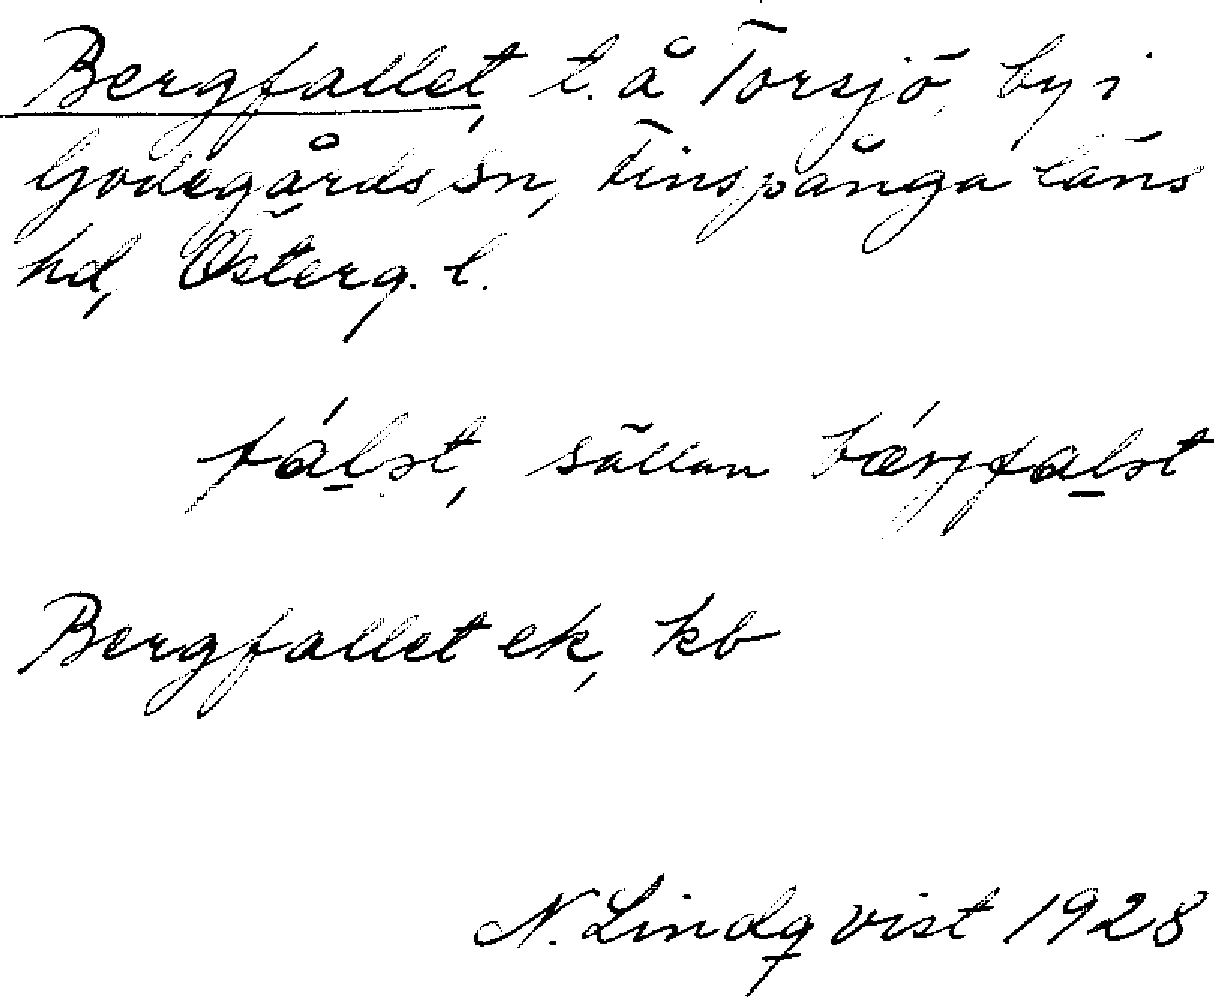 Bergfallet, t. å Torsjö, by i
Godegårds sn, Finspånga läns
hd, Österg. l.
fálst, sällan bǽrjfalst
Bergfallet ek, kb
N. Lindqvist 1928